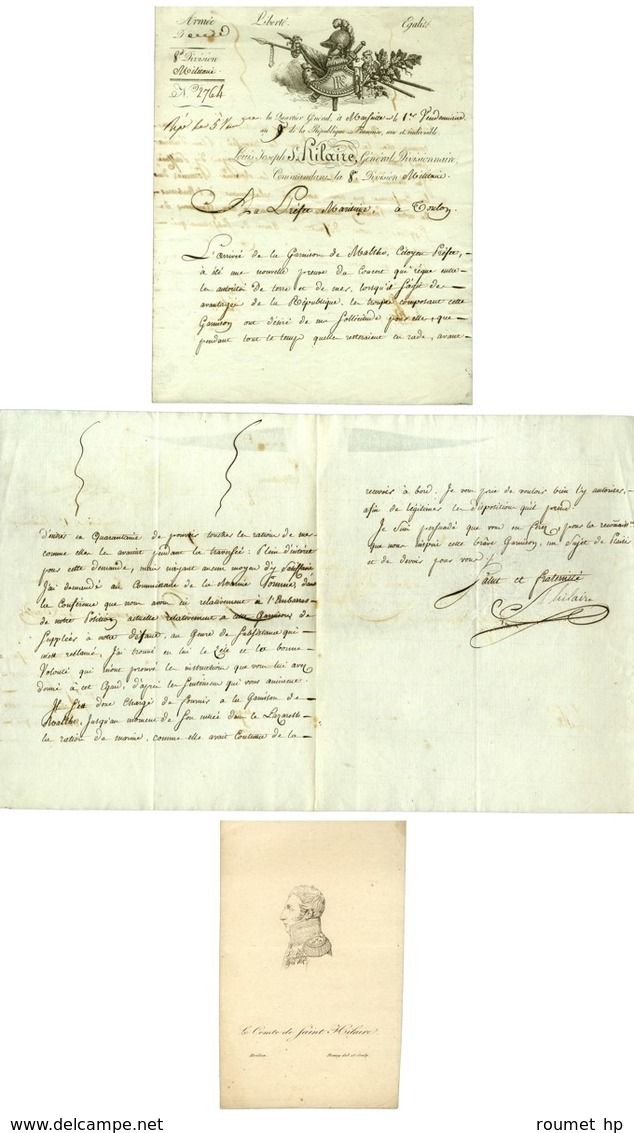 Armée
Liberté
Egalité
8e Division
Militaire.
No 2764
Rép. le 5 Vend
au Quartier Général, à Marseille le 1er Vendemiaire
an 9 de la République Française, une et indivisible.
Louis Joseph St. Hilaire, Général Divisionnaire
Commandant la 8e Division Militaire.
Au Préfet Maritime, à Toulon.
L'arrivée de la Garnison de Malthe, Citoyen Préfet,
a été une nouvelle preuve du Concert qui règne entre
les autorités de terre et de mer, lorsqu'il s'agit de
avantages de la République. les troupes composant cette
Garnison ont désiré de ma sollicitude pour elle, que
pendant tout le temps quelles resteraient en rade, avant
d'entrer en Quarantaine de pouvoir toucher les rations de mer
comme elles les avaient pendant la traversée: Plein d'intérêt
pour cette demande, mais n'ayant aucun moyen d'y satisfaire
J'ai demandé au Commissaire de la Marine dans
la Conférence que nous avons eu relativement à l'Embarras
de notre Position actuelle relativement à cette Garnison de
Suppléer à notre défaut, au Genre de Subsistance qui
était réclamé, J'ai trouvé en lui le Zèle et la bonne
Volonté qui m'ont prouvé les instructions que vous lui avez
donné à cet Egard, d'après les Sentimens qui vous animent.
Il Sera donc Chargé de fournir à la Garnison de
Malthe, Jusqu'au moment de Son entrée dans le Lazareth
les rations de marine, comme elle avait Coutume de les
recevoir à bord. Je vous prie de vouloir bien l'y autoriser,
afin de légitimer les dispositions qu'il prend.
Je Suis persuadé que vous en ferez, pour la reconnais
que nous inspire cette brave Garnison, un Sujet de Plaisir
et de devoir pour vous.
Salut et fraternité
St hilaire
Le Comte de Saint Hilaire.
roumet hp